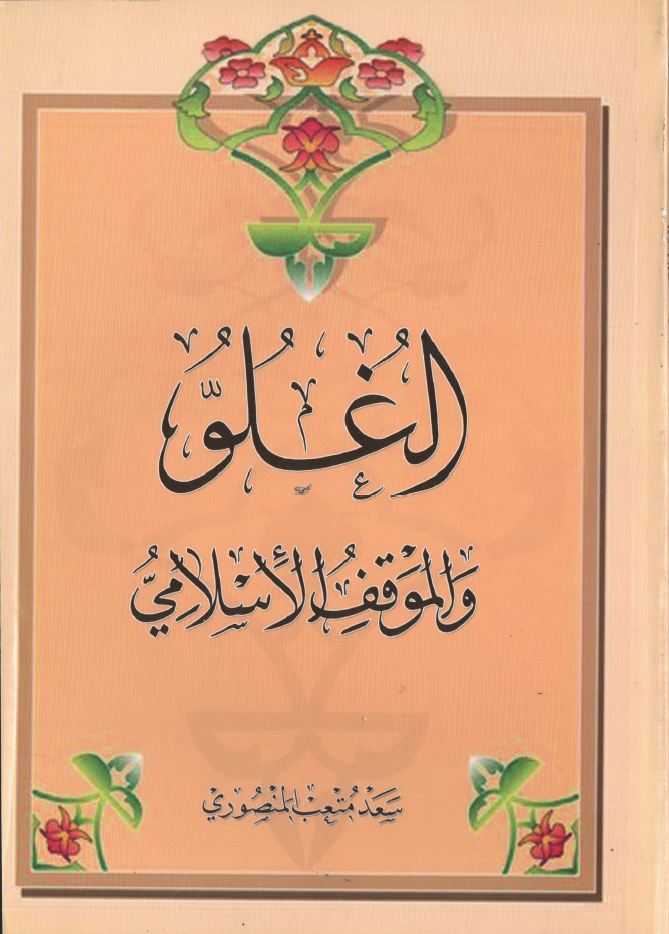 الغُلُوّ
وَالموَقفُ الأسْلامِيُّ
سَعَد مُتعِب المنصُوري